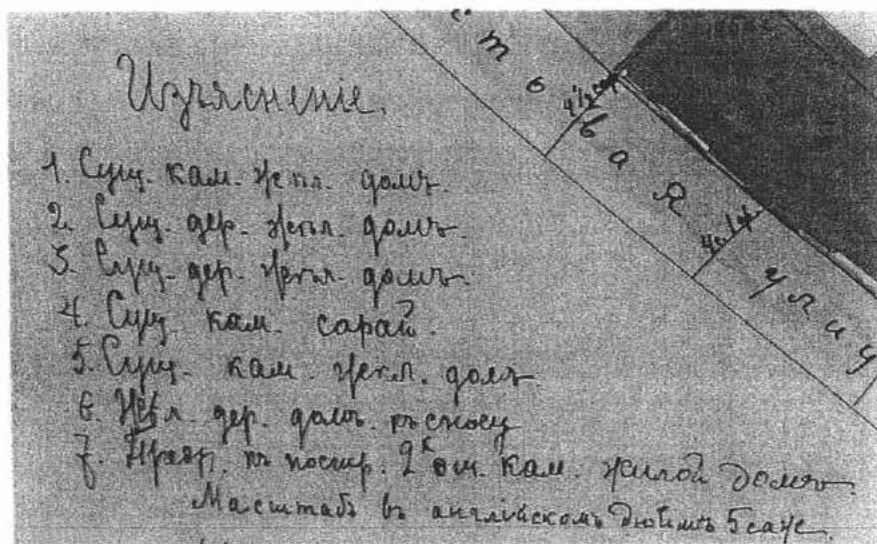 Изъясненіе.
1. Сущ. кам. жил. домъ.
2. Сущ. дер. жил. домъ.
3. Сущ. дер. жил. домъ.
4. Сущ. кам. сарай.
5. Сущ. кам. жил. домъ
6. дер. домъ. къ сносу
7. къ постр. 2х эт. кам. жилой домъ.
Масштабъ въ англійскомъ дюймѣ 5 саж.
товая улиц